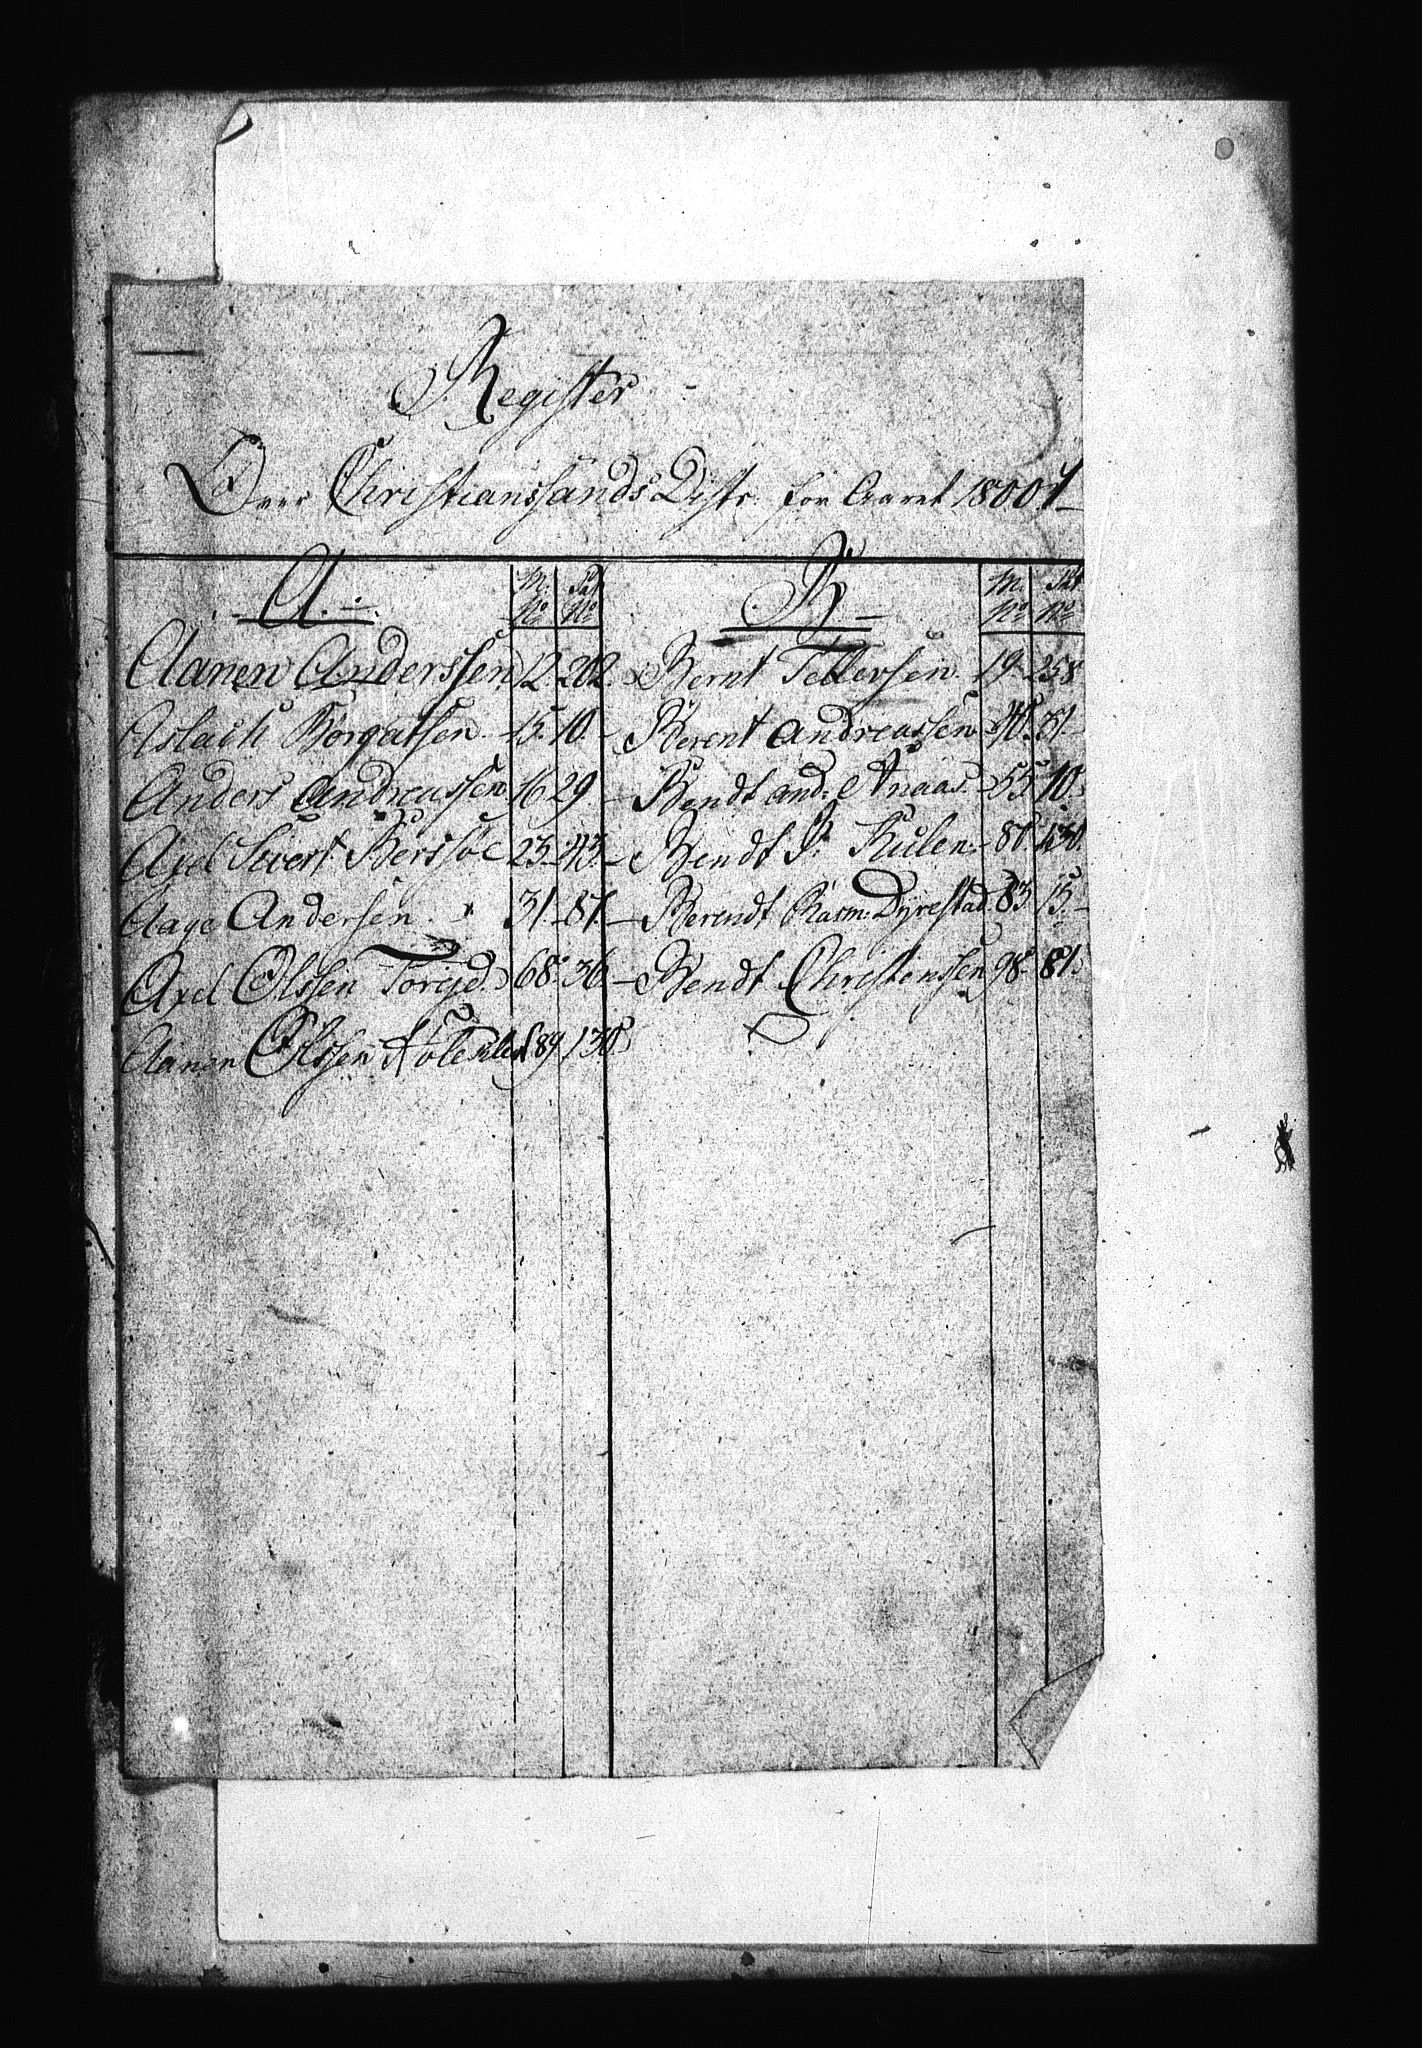 Register
Over Christianssands Distr. for Aaret 1800
A.
M. No
Pat No
Aanen Anderssen 12 202
Aslach Borgatsen 15 10
Anders Andreassen 16 29
Axel Sivert Berssøe 23 43
Aage Andersen 31 87
Axel Olssen Torijd 68 36
Aanen Olssen 89 130
B.
M. No
Pat No
Bernt Tellefsen 19 258
Berent Andreassen 40 31
Bendt And: Anaas 55 10
Bendt P. Kulen 130
Berendt Rasm: Dyrestad 83 15
Bendt Christenssen 98 81